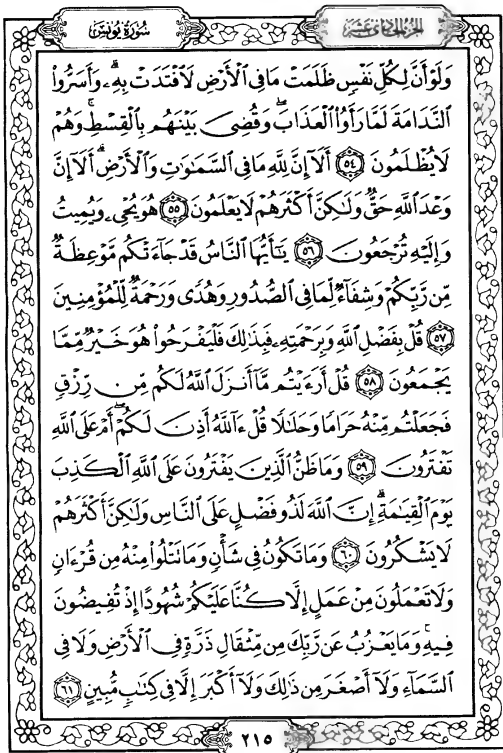 سُورَةُ يُونُسَ
الجُزءُ الحَادِى عَشَرَ
وَلَوْ أَنَّ لِكُلِّ نَفْسٍ ظَلَمَتْ مَا فِى ٱلْأَرْضِ لَٱفْتَدَتْ بِهِۦۗ وَأَسَرُّوا۟
ٱلنَّدَامَةَ لَمَّا رَأَوُا۟ ٱلْعَذَابَۖ وَقُضِىَ بَيْنَهُم بِٱلْقِسْطِۚ وَهُمْ
لَا يُظْلَمُونَ ٥٤ أَلَآ إِنَّ لِلَّهِ مَا فِى ٱلسَّمَٰوَٰتِ وَٱلْأَرْضِۗ أَلَآ إِنَّ
وَعْدَ ٱللَّهِ حَقٌّ وَلَٰكِنَّ أَكْثَرَهُمْ لَا يَعْلَمُونَ ٥٥ هُوَ يُحْىِۦ وَيُمِيتُ
وَإِلَيْهِ تُرْجَعُونَ ٥٦ يَٰٓأَيُّهَا ٱلنَّاسُ قَدْ جَآءَتْكُم مَّوْعِظَةٌ
مِّن رَّبِّكُمْ وَشِفَآءٌ لِّمَا فِى ٱلصُّدُورِ وَهُدًى وَرَحْمَةٌ لِّلْمُؤْمِنِينَ
٥٧ قُلْ بِفَضْلِ ٱللَّهِ وَبِرَحْمَتِهِۦ فَبِذَٰلِكَ فَلْيَفْرَحُوا۟ هُوَ خَيْرٌ مِّمَّا
يَجْمَعُونَ ٥٨ قُلْ أَرَءَيْتُم مَّآ أَنزَلَ ٱللَّهُ لَكُم مِّن رِّزْقٍ
فَجَعَلْتُم مِّنْهُ حَرَامًا وَحَلَٰلًا قُلْ ءَآللَّهُ أَذِنَ لَكُمْۖ أَمْ عَلَى ٱللَّهِ
تَفْتَرُونَ ٥٩ وَمَا ظَنُّ ٱلَّذِينَ يَفْتَرُونَ عَلَى ٱللَّهِ ٱلْكَذِبَ
يَوْمَ ٱلْقِيَٰمَةِۗ إِنَّ ٱللَّهَ لَذُو فَضْلٍ عَلَى ٱلنَّاسِ وَلَٰكِنَّ أَكْثَرَهُمْ
لَا يَشْكُرُونَ ٦٠ وَمَا تَكُونُ فِى شَأْنٍ وَمَا تَتْلُوا۟ مِنْهُ مِن قُرْءَانٍ
وَلَا تَعْمَلُونَ مِنْ عَمَلٍ إِلَّا كُنَّا عَلَيْكُمْ شُهُودًا إِذْ تُفِيضُونَ
فِيهِۚ وَمَا يَعْزُبُ عَن رَّبِّكَ مِن مِّثْقَالِ ذَرَّةٍ فِى ٱلْأَرْضِ وَلَا فِى
ٱلسَّمَآءِ وَلَآ أَصْغَرَ مِن ذَٰلِكَ وَلَآ أَكْبَرَ إِلَّا فِى كِتَٰبٍ مُّبِينٍ ٦١
٢١٥